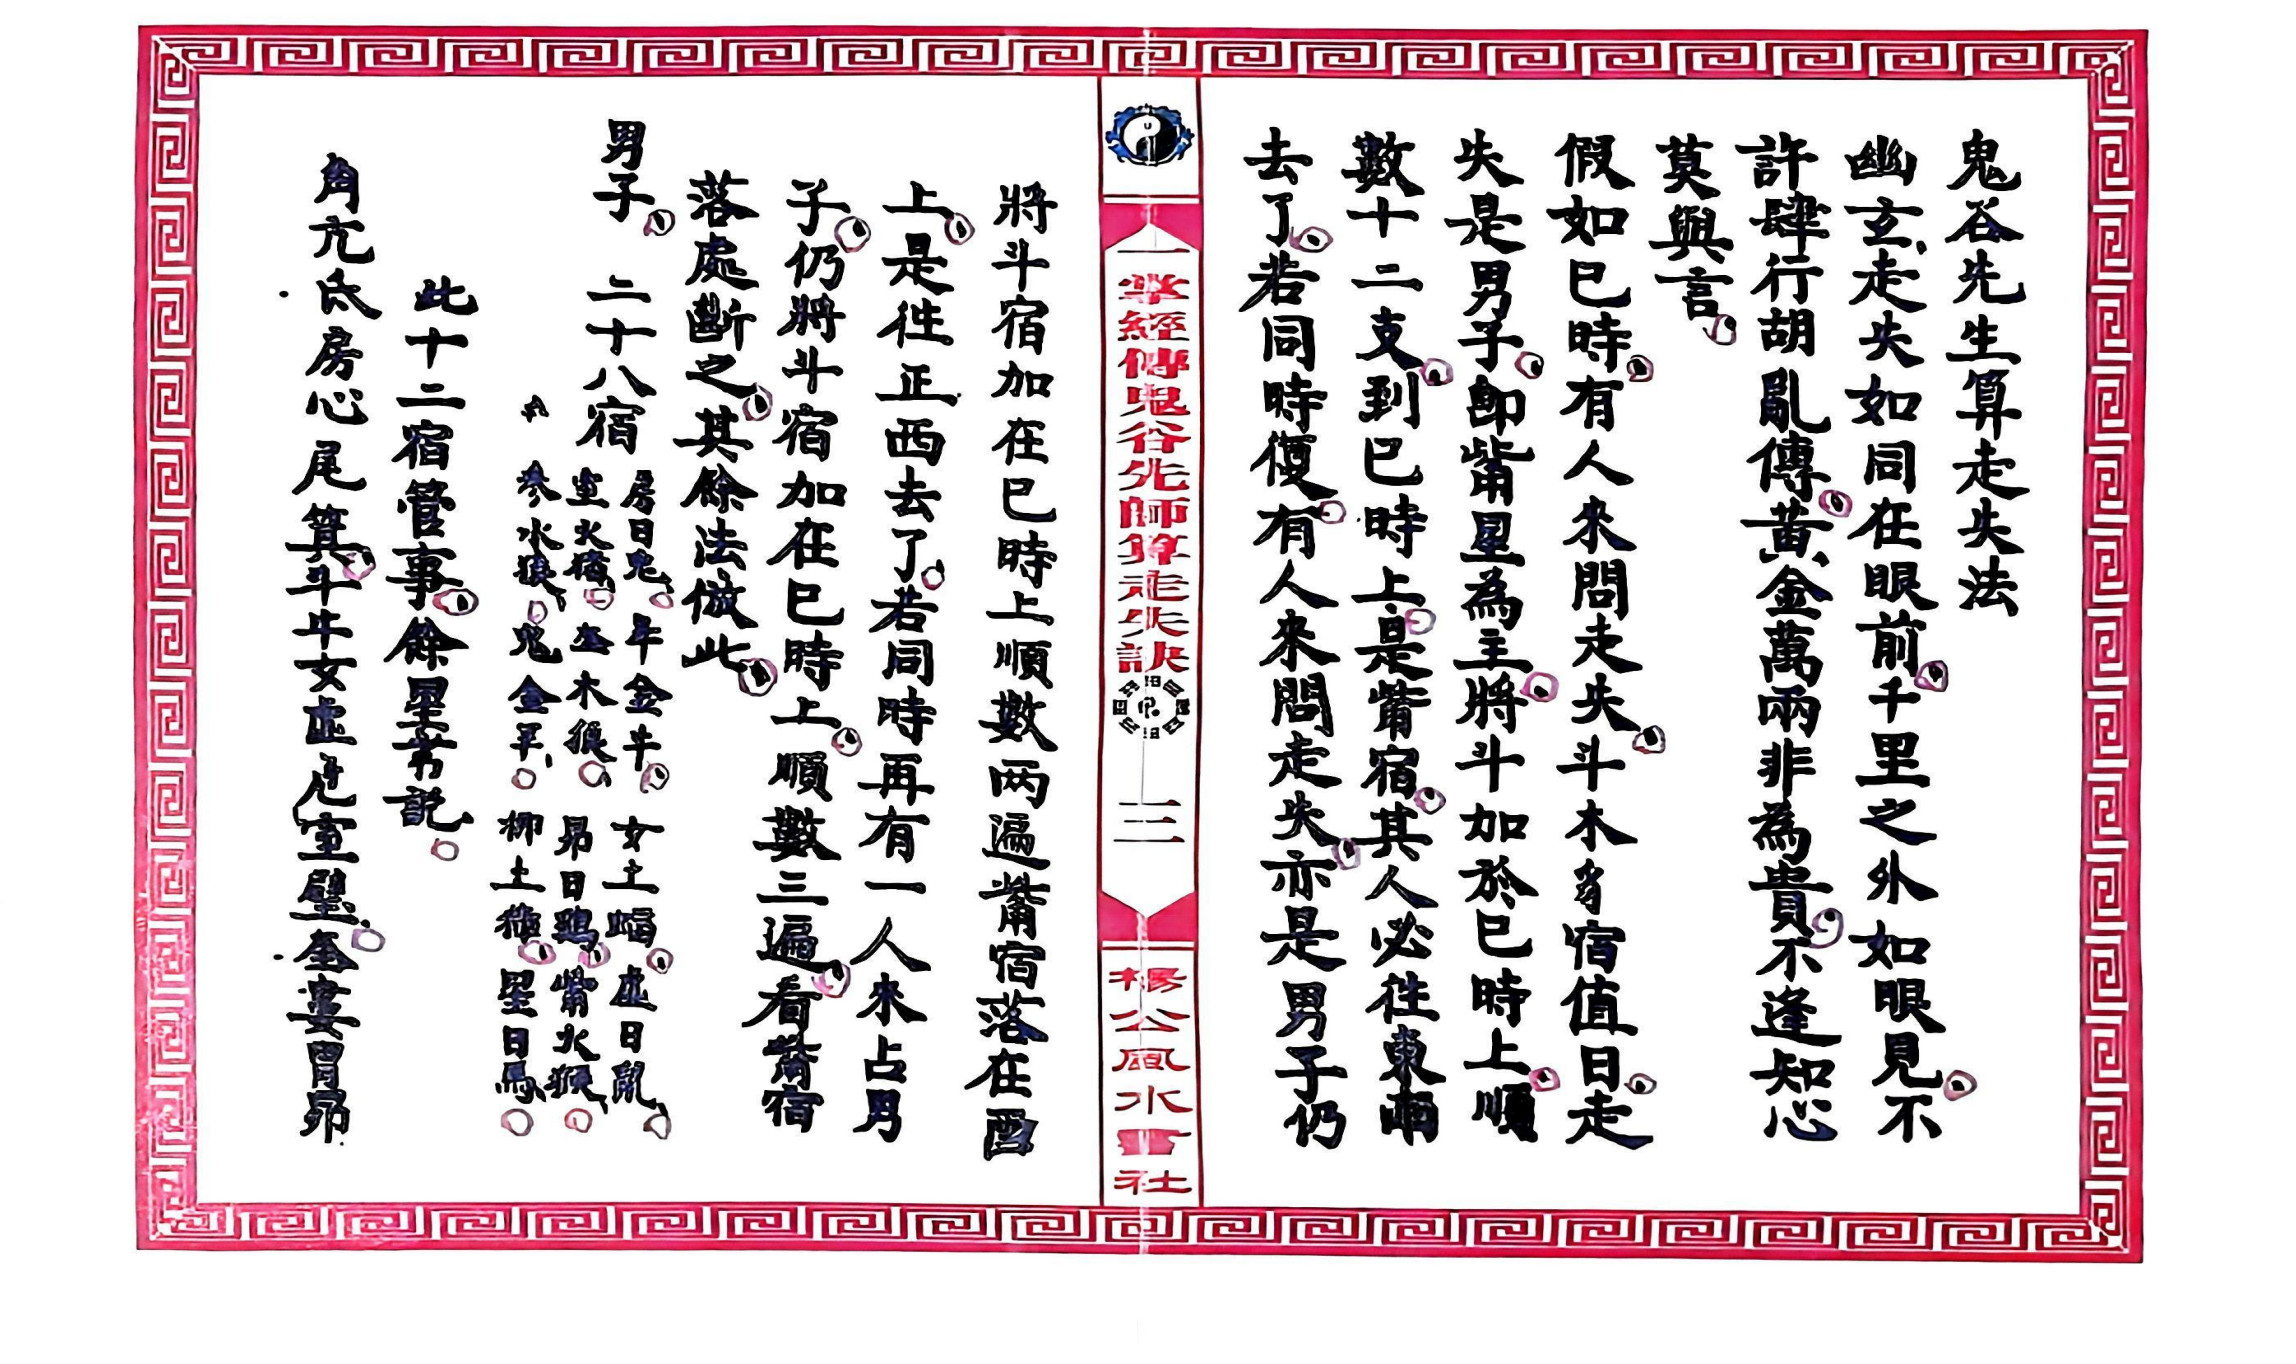 鬼谷先生算走失法
幽玄走失如同在眼前千里之外如眼見不
許肆行胡亂傳黃金萬兩非為貴不逢知心
莫與言
假如巳時有人來問走失斗木豸宿值日走
失是男子即觜星為主將斗加於巳時上順
數十二支到巳時上是觜宿其人必往東南
去了若同時復有人來問走失亦是男子仍
一掌經傳鬼谷先師算走失訣
三
楊公風水書社
將斗宿加在巳時上順數两遍觜宿落在酉
上是往正西去了若同時再有一人來占男
子仍將斗宿加在巳時上順數三遍看觜宿
落處斷之其餘法倣此
男子 二十八宿
房日兔 牛金牛 女土蝠 虛日鼠
室火豬 奎木狼 昴日鷄 觜火猴
參水猿 鬼金羊 柳土獐 星日馬
此十二宿管事餘星若説
角亢氐房心尾箕斗牛女虛危室壁奎婁胃昴